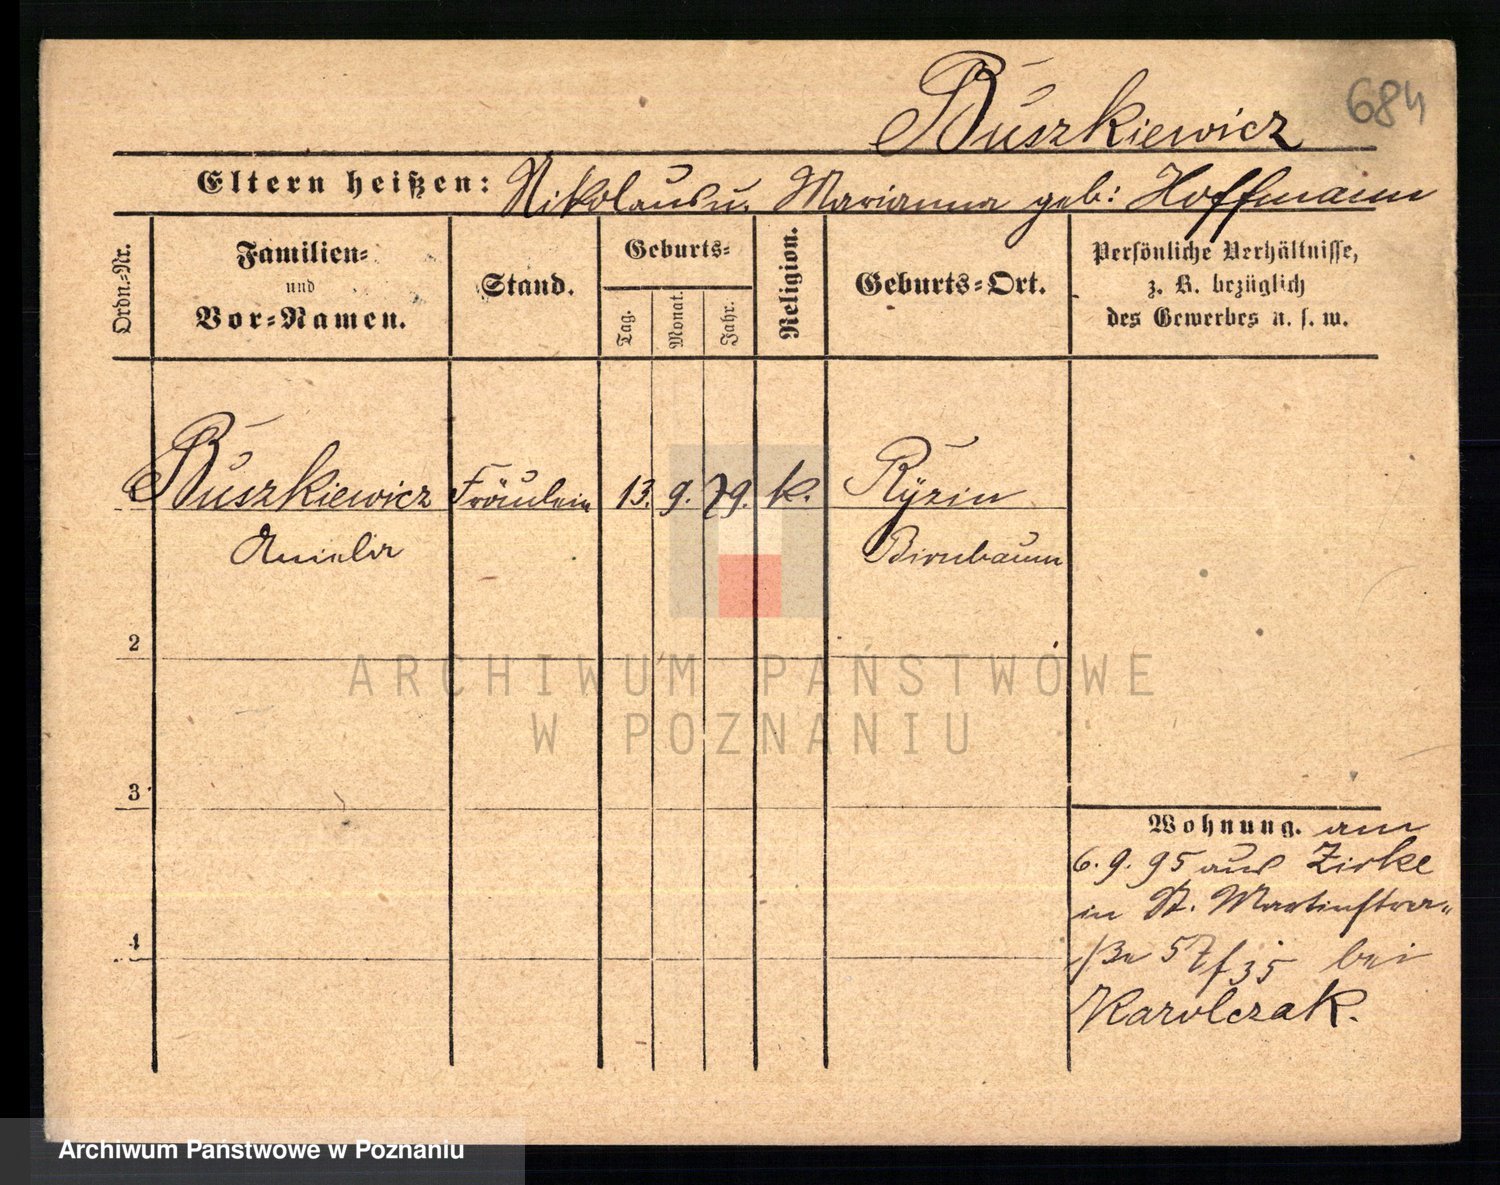 684
Buszkiewicz
Eltern heißen: Nikolaus u. Marianna geb: Hoffmann
Ordn.=Nr.
Familien=
und
Vor=Namen.
Stand.
Geburts=
Tag.
Monat.
Jahr.
Religion.
Geburts=Ort.
Persönliche Verhältnisse,
z. B. bezüglich
des Gewerbes u. s. w.
Buszkiewicz Fräulein 13. 9. 79. k. Ryzin
Aniela Birnbaum
2
ARCHIWUM PAŃSTWOWE
W POZNANIU
3
Wohnung. am
6. 9. 95 aus Zirke
in St. Martinstra=
4
ße 57/35 bei
Karolczak.
Archiwum Państwowe w Poznaniu